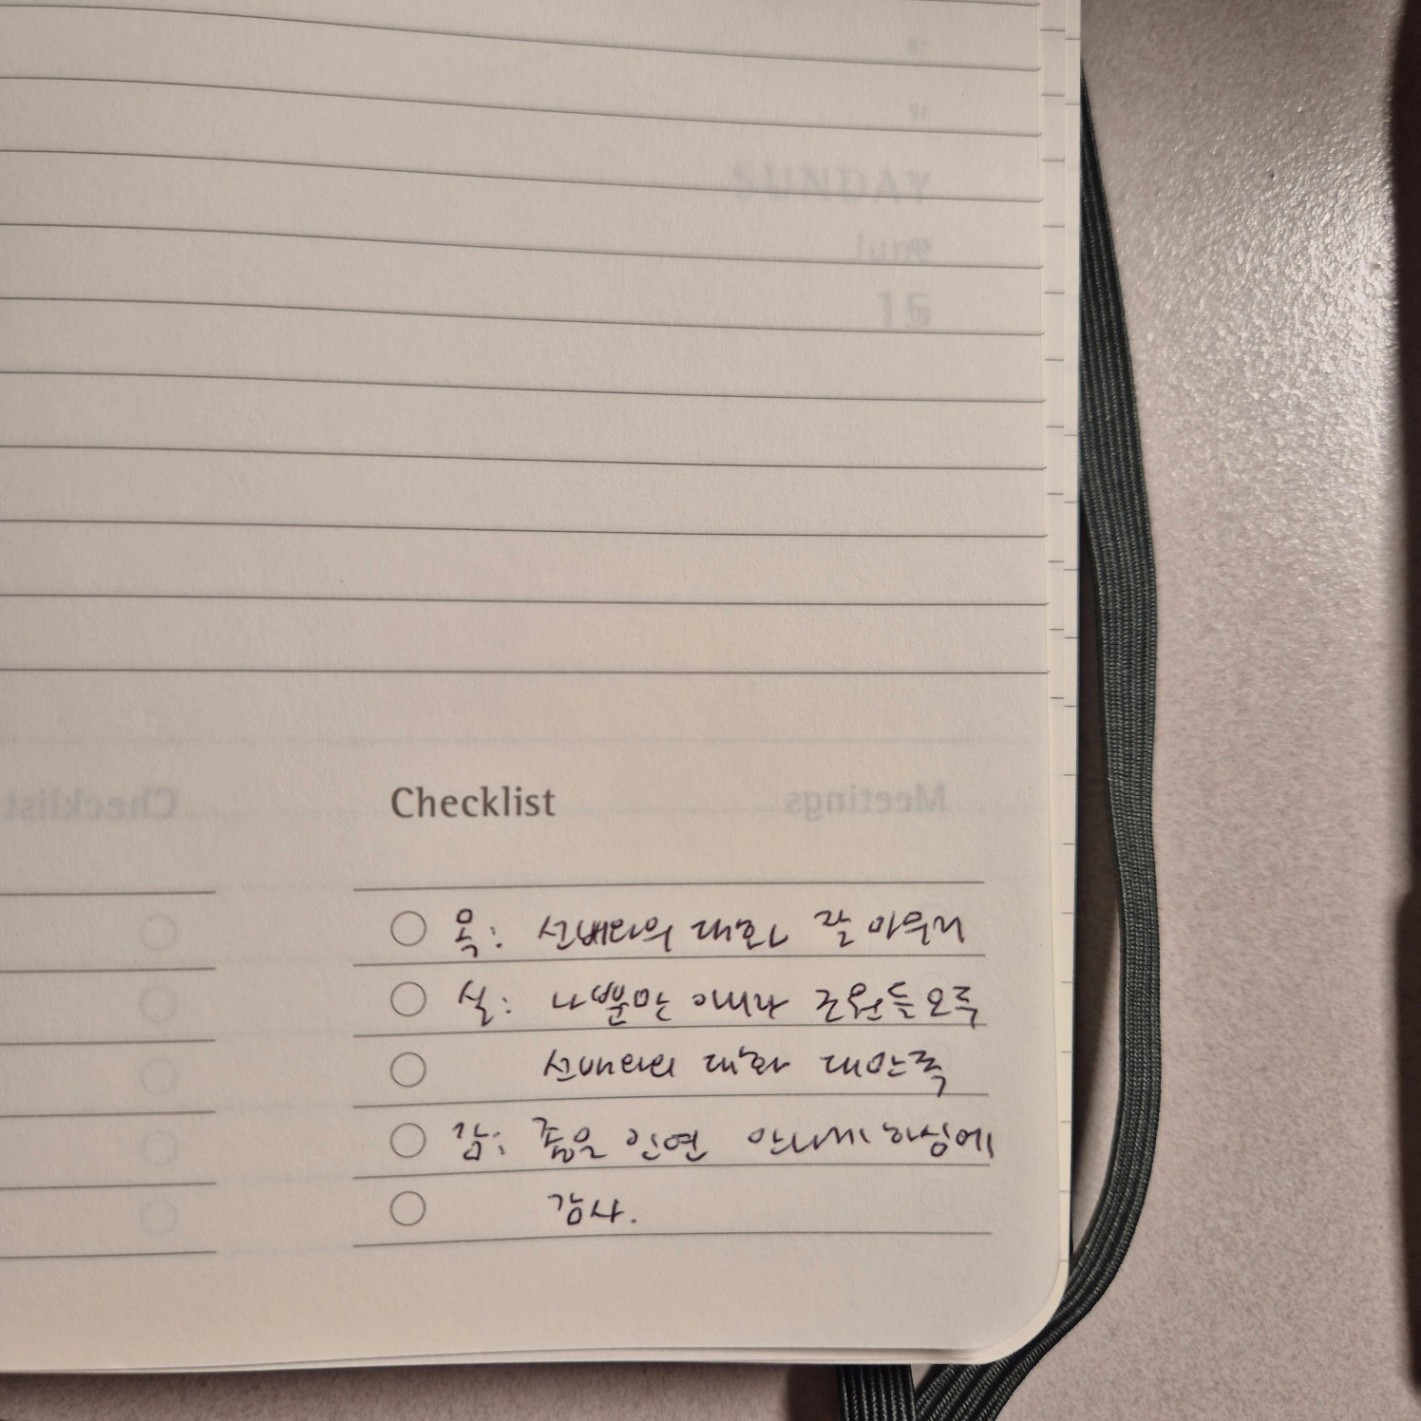 SUNDAY
June
15
Checklist
Checklist
Meetings
목: 선배와의 대화 잘 마무리
실: 나뿐만 아니라 조원들 모두
선배와의 대화 대만족
감: 좋은 인연 만나게 하심에
감사.